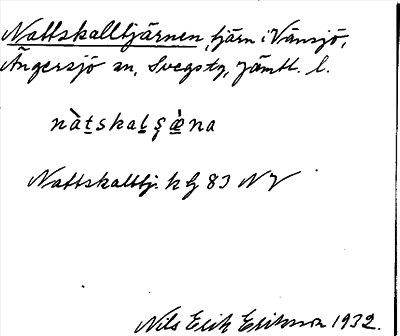 Nattskalltjärnen, tjärn i Vänsjö,
Ängersjö sn, Svegs tg, Jämtl. l.
nàtskaḻşæ̀na
Nattskalltj. k bl 83 NV
Nils Erik Eriksson 1932.